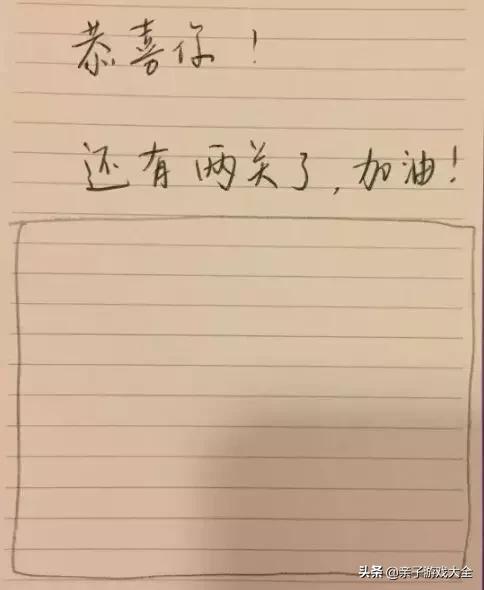 恭喜你！
还有两关了，加油！
头条 @亲子游戏大全